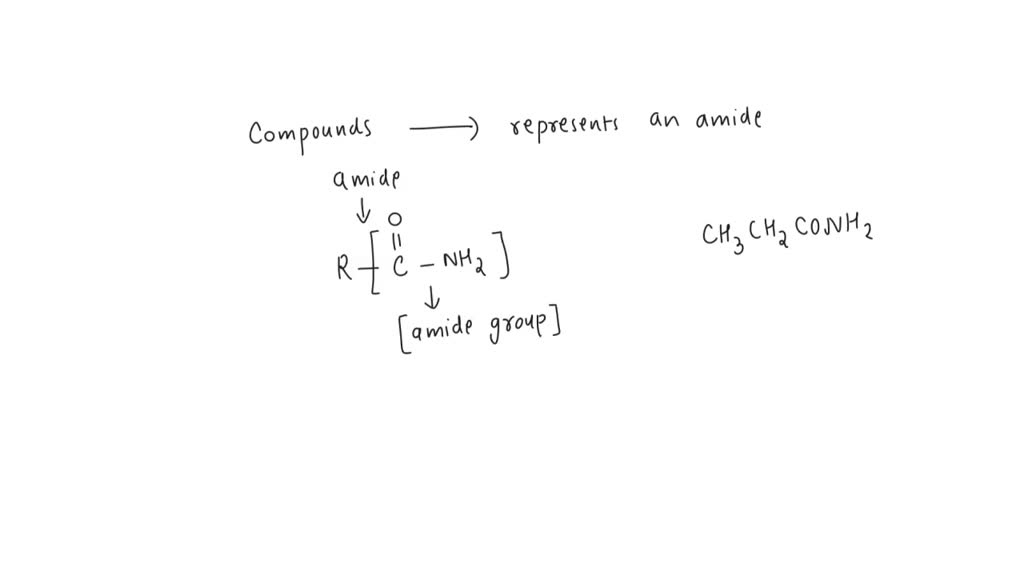 Compounds ⟶ represents an amide
amide
↓ O
||
R-[C-NH2]
↓
[amide group]
CH3CH2CONH2